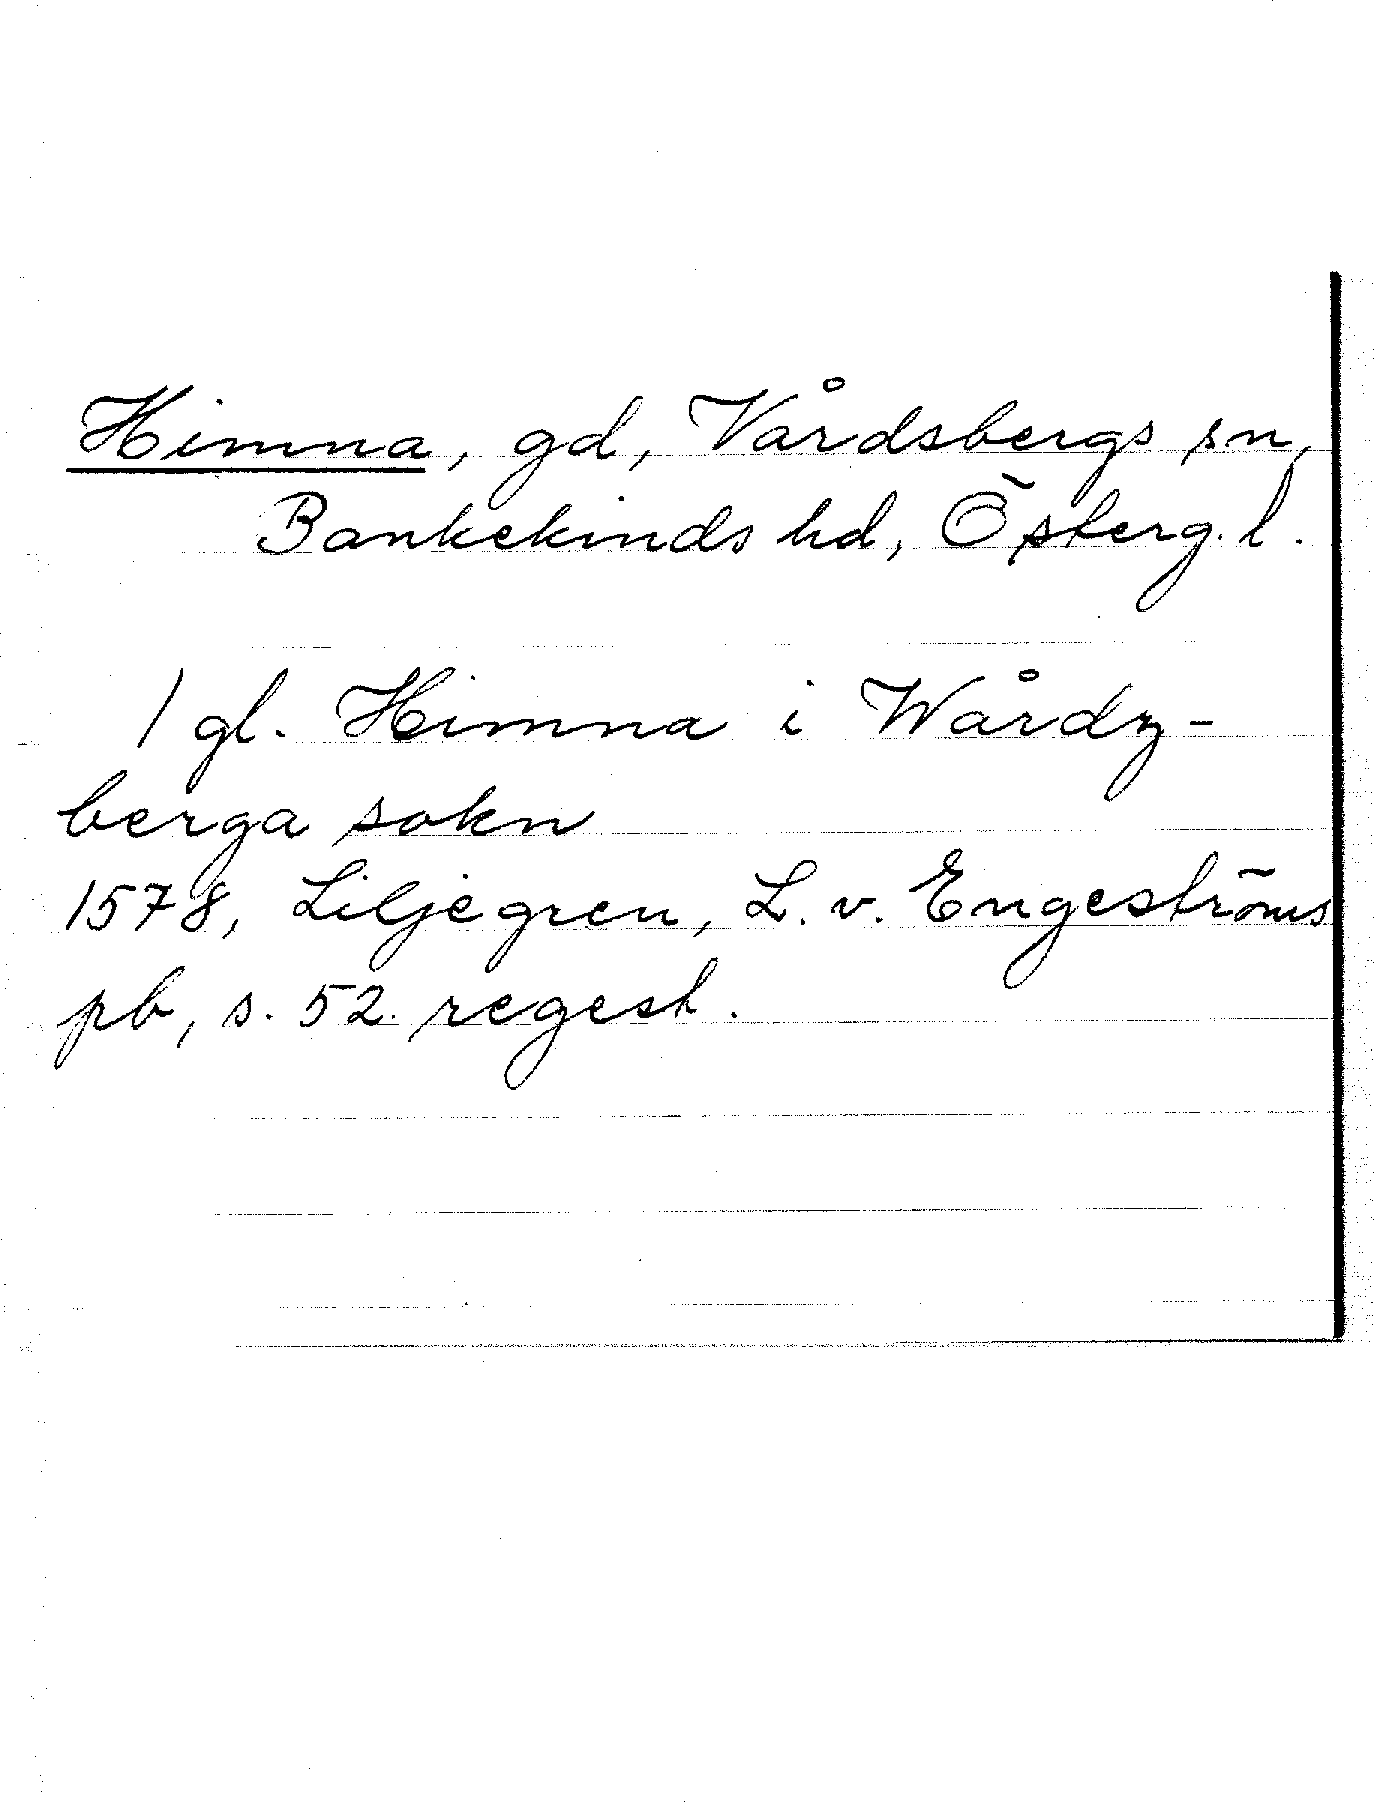 Himna, gd, Vårdsbergs sn,
Bankekinds hd, Österg. l.
1 gl. Himna i Wårdz-
berga sokn
1578, Liljegren, L. v. Engeströms
pb, s. 52. regest.